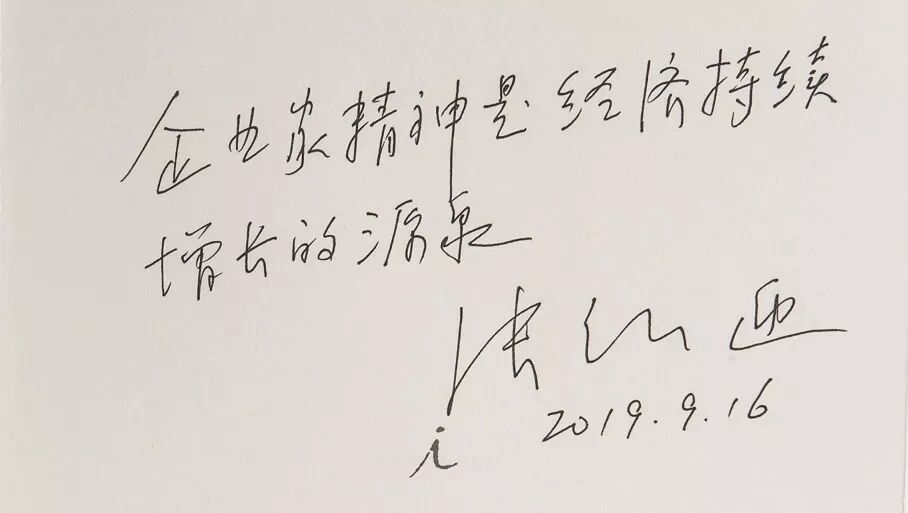 企业家精神是经济持续
增长的源泉
张维迎
2019.9.16
i